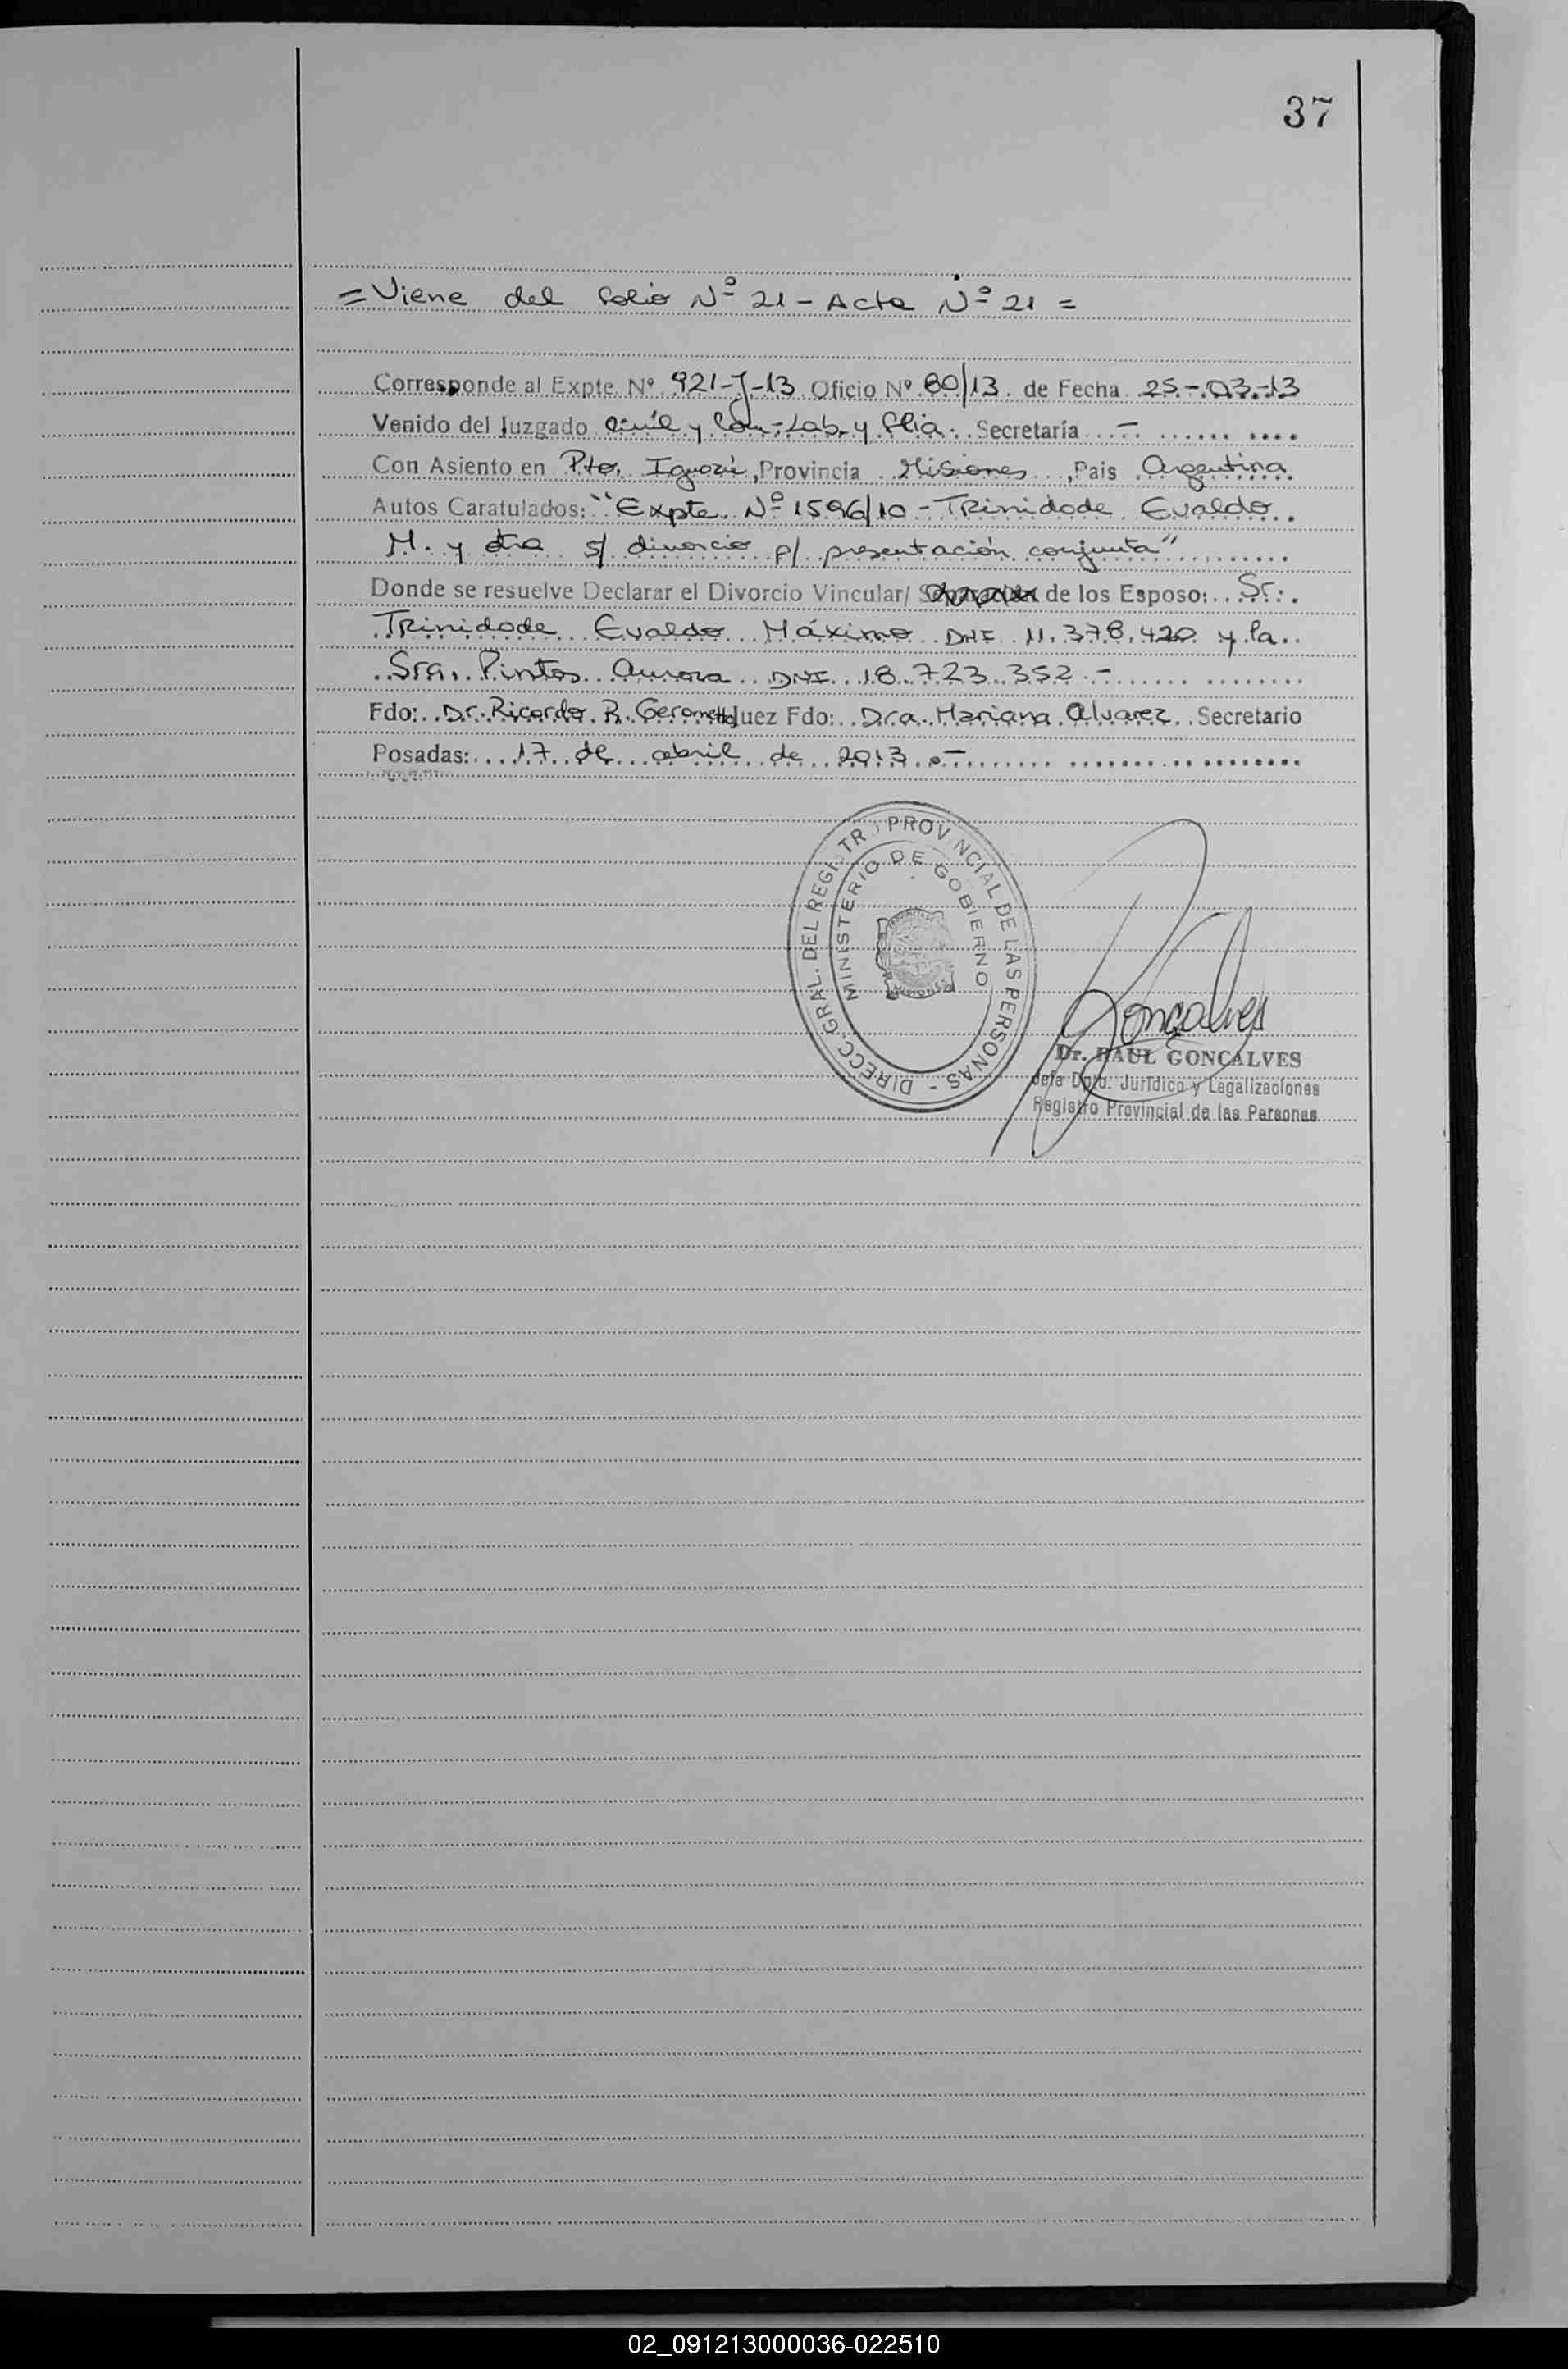 37
= Viene del folio Nº 21 - Acta Nº 21 =
Corresponde al Expte. Nº 921-J-13 Oficio Nº 80/13 de Fecha 25-03-13
Venido del Juzgado Civil y Com-Lab. y Flia. Secretaría -
Con Asiento en Pto. Iguazú, Provincia Misiones, Pais Argentina
Autos Caratulados: "Expte. Nº 1596/10 - Trinidade Evaldo
M. y otra s/ divorcio p/ presentación conjunta"
Donde se resuelve Declarar el Divorcio Vincular/ de los Esposo: Sr.
Trinidade Evaldo Máximo DNI 11.378.420 y la
Sra. Pintos Aurora DNI 18.723.352 -
Fdo: Dr. Ricardo R. Gerometta Juez Fdo: Dra. Mariana Alvarez Secretario
Posadas: 17 de abril de 2013.-
DIRECC. GRAL. DEL REGISTRO PROVINCIAL DE LAS PERSONAS -
MINISTERIO DE GOBIERNO
MISIONES
Gonçalves
Dr. RAUL GONCALVES
Jefe Dpto. Jurídico y Legalizaciones
Registro Provincial de las Personas
02_091213000036-022510